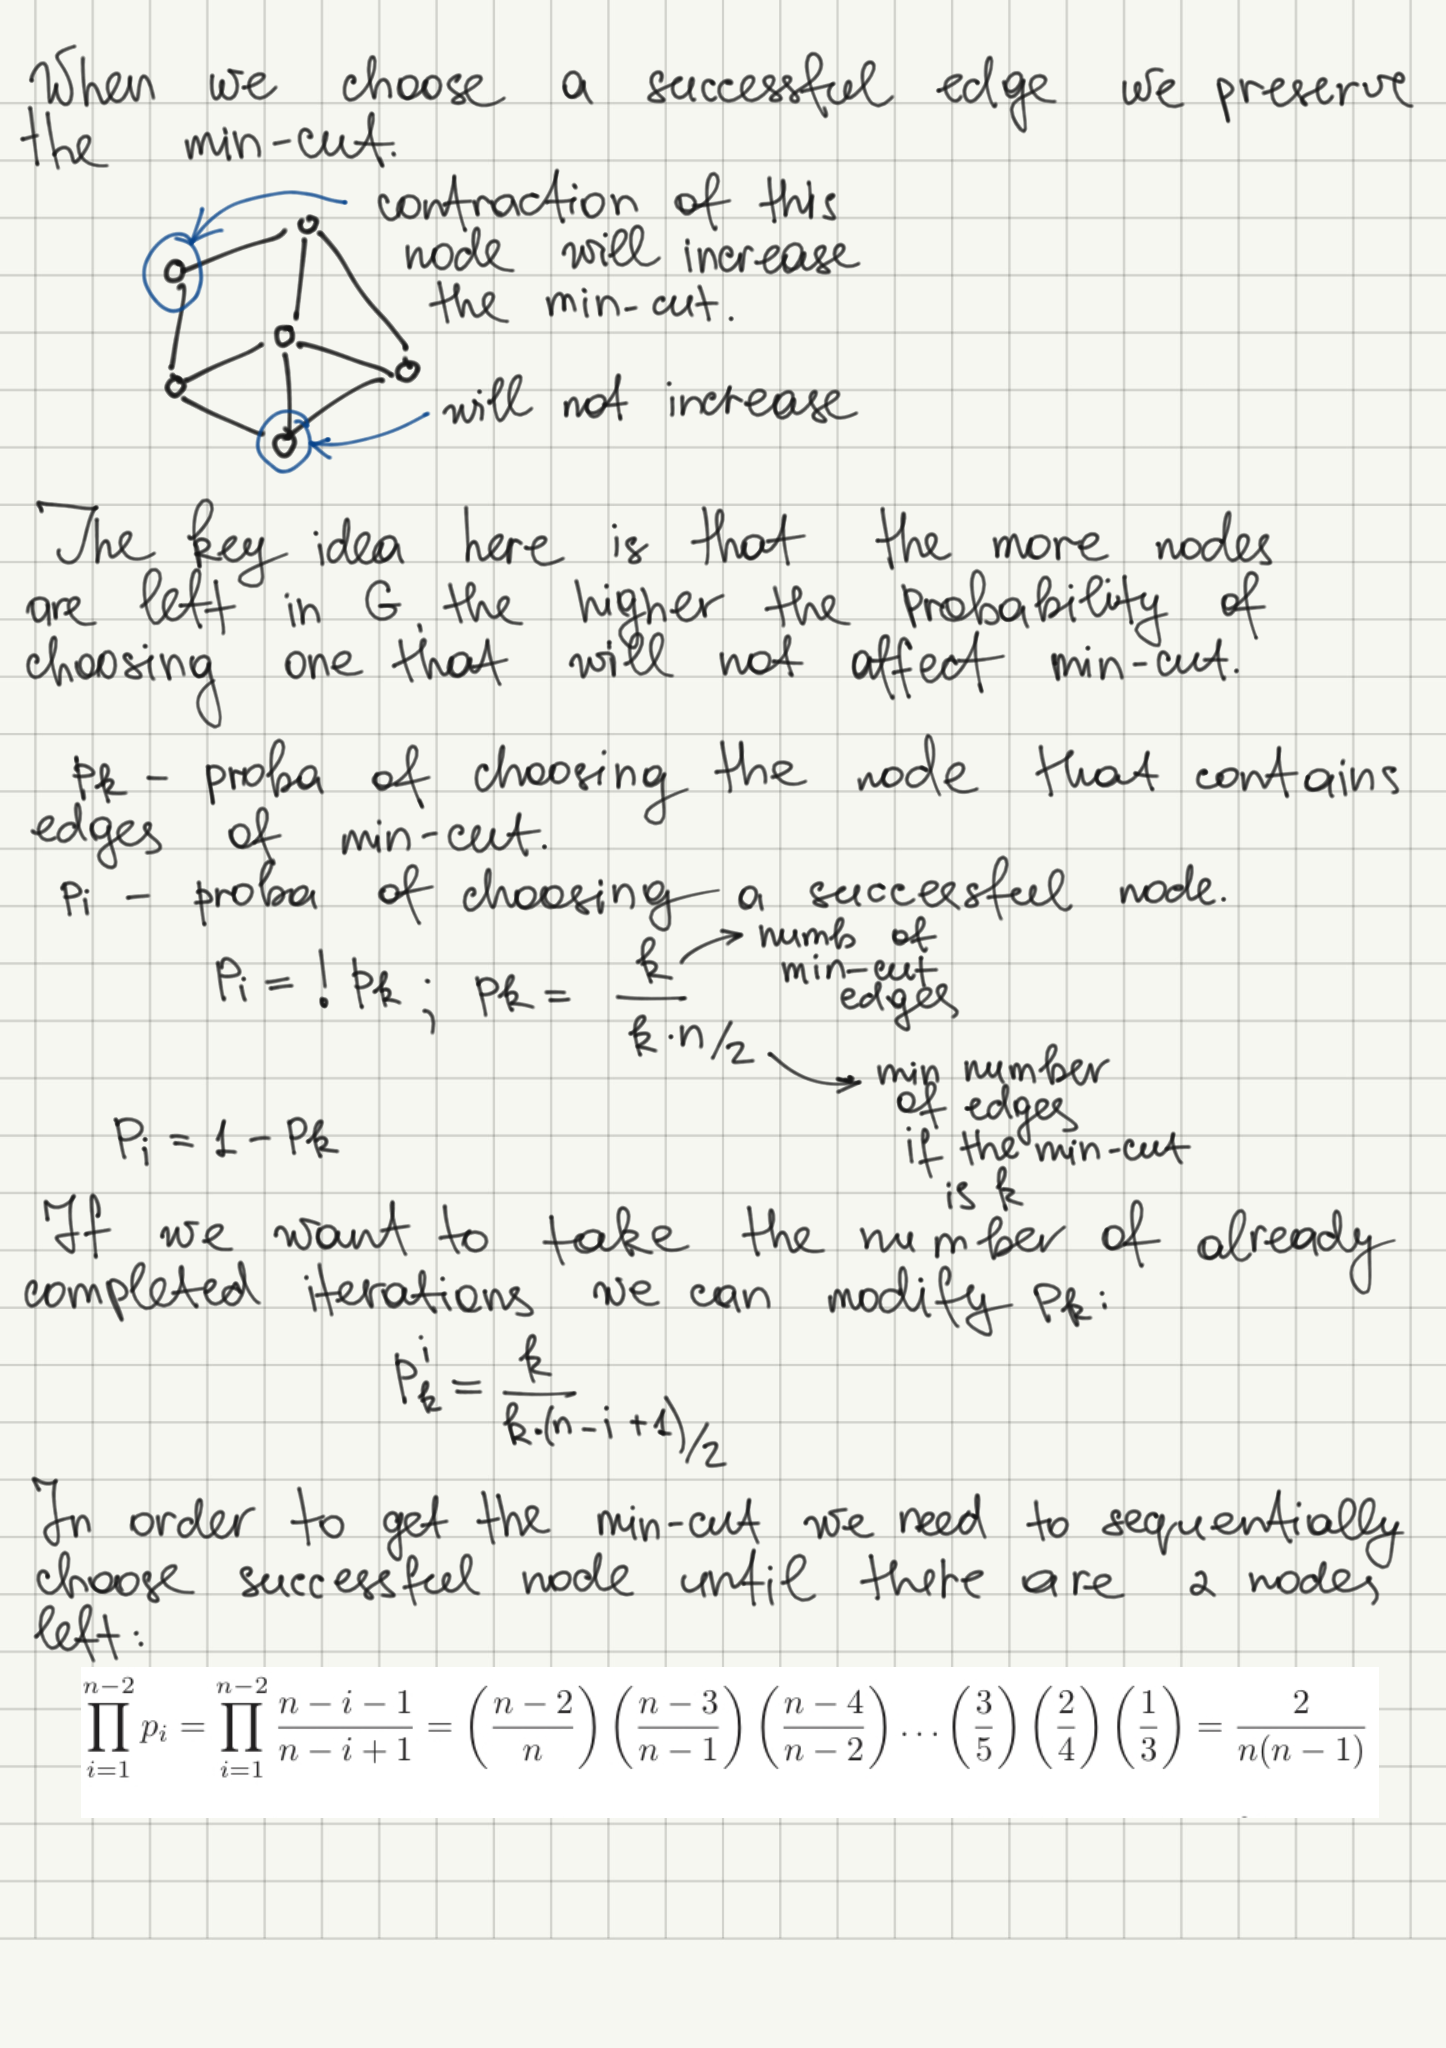 When we choose a successful edge we preserve
the min-cut.
contraction of this
node will increase
the min-cut.
will not increase
The key idea here is that the more nodes
are left in G, the higher the probability of
choosing one that will not affect min-cut.
pk - proba of choosing the node that contains
edges of min-cut.
pi - proba of choosing a successful node.
Pi = ! Pk ; Pk = k / (k·n/2)
numb of
min-cut
edges
min number
of edges
if the min-cut
is k
Pi = 1 - Pk
If we want to take the number of already
completed iterations we can modify Pk:
P_k^i = k / (k·(n-i+1)/2)
In order to get the min-cut we need to sequentially
choose successful node until there are 2 nodes
left:
∏_{i=1}^{n−2} p_i = ∏_{i=1}^{n−2} (n − i − 1)/(n − i + 1) = ((n − 2)/n) ((n − 3)/(n − 1)) ((n − 4)/(n − 2)) … (3/5) (2/4) (1/3) = 2/(n(n − 1))